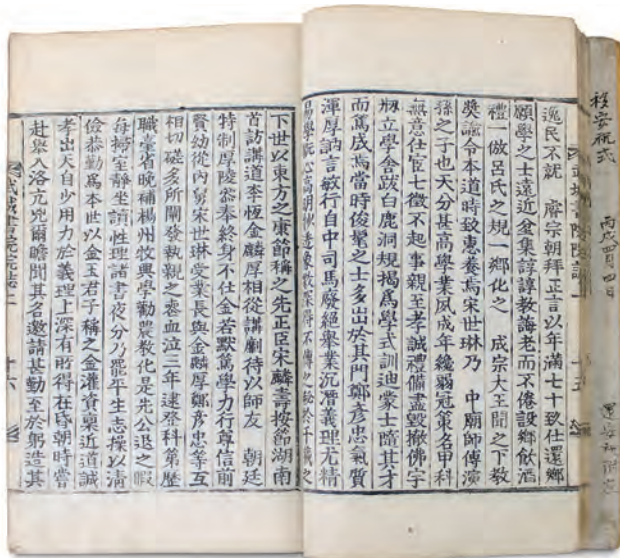 移安祝式
丙戌四月四日
還安祝
武城書院院誌 十五
逸民不就 睿宗朝拜正言以年滿七十致仕還鄉
願學之士遠近坌集諄諄教誨老而不倦設鄉飮酒
禮一倣呂氏之規一鄉化之 成宗大王聞之下敎
奬諭令本道時致惠養焉宋世琳乃 中廟師傅演
孫之子也天分甚高學業夙成年纔弱冠策名甲科
無意仕宦七徵不起事親至孝誠禮備盡毁撤佛宇
刱立學舍跋白鹿洞規揭爲學式訓迪蒙士隨其才
而篤成焉當時俊髦之士多出於其門鄭彦忠氣質
渾厚訥言敏行自中司馬廢絕擧業沉潛義理尤精
易學玩心高明 象數深得不傳之秘於千載之
下世以東方之康節稱之先正臣宋麟壽按節湖南
首訪講道李恒金麟厚相從講劘待以師友 朝廷
特制厚陵叅奉終身不仕金若默篤學力行尊信前
賢幼從內舅宋世琳受業長與金麟厚鄭彦忠等互
相切磋多所闡發執親之喪血泣三年逮登科第歷
職臺省晚補楊州牧興學勸農敎化是先公退之暇
每掃室靜坐讀性理諸書夜分乃罷平生志操以淸
儉恭勤爲本世以金玉君子稱之金灌資稟近道誠
孝出天自少用力於義理上深有所得在昏朝時嘗
赴擧入洛亢兇爾瞻聞其名邀請甚勤至於躬造其
武城書院院誌 十六